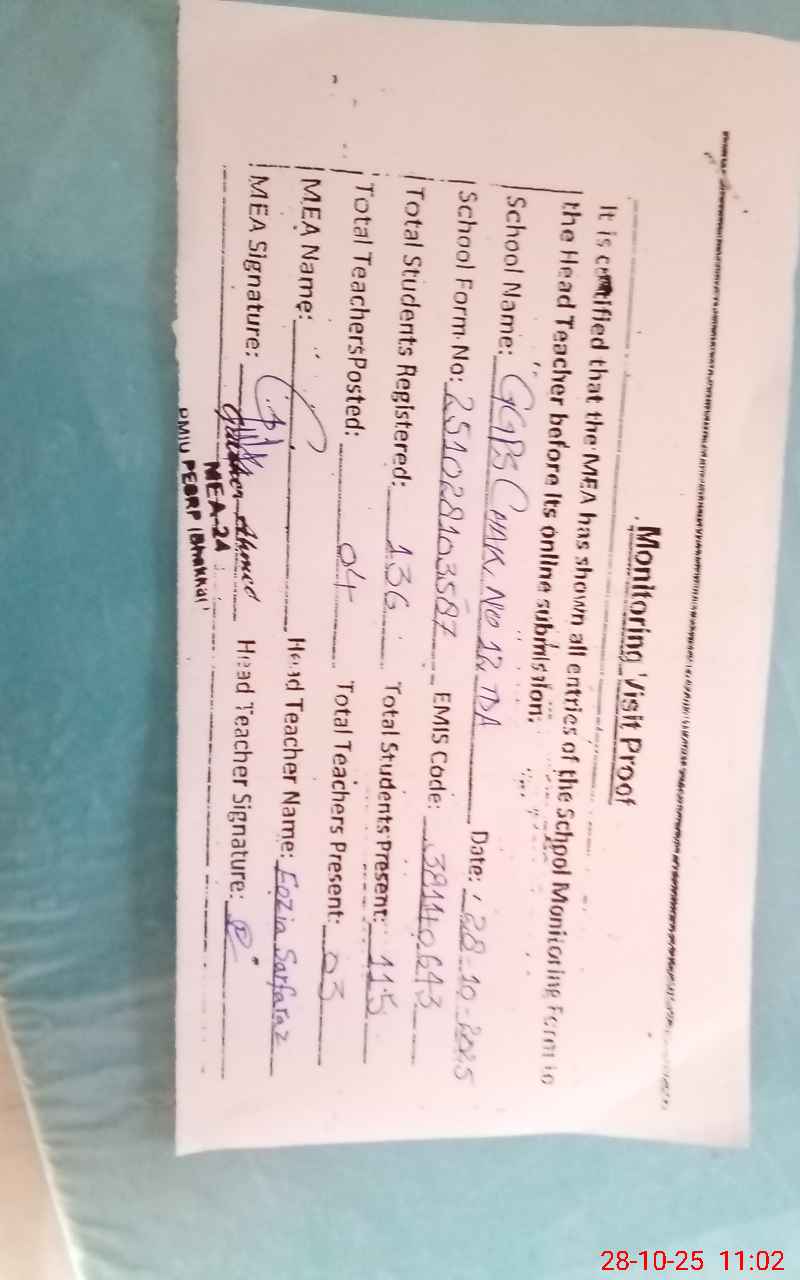 Monitoring Visit Proof
It is certified that the MEA has shown all entries of the School Monitoring Form to
the Head Teacher before its online submission.
School Name: GGPS Chak No 12 TDA Date: 28-10-2025
School Form No: 251028103587 EMIS Code: 38140643
Total Students Registered: 136 Total Students Present: 115
Total TeachersPosted: 04 Total Teachers Present: 03
MEA Name: Head Teacher Name: Fozia Sarfaraz
MEA Signature: Ahmed Head Teacher Signature:
MEA-24
PMIU PESRP (Bhakkar)
28-10-25 11:02